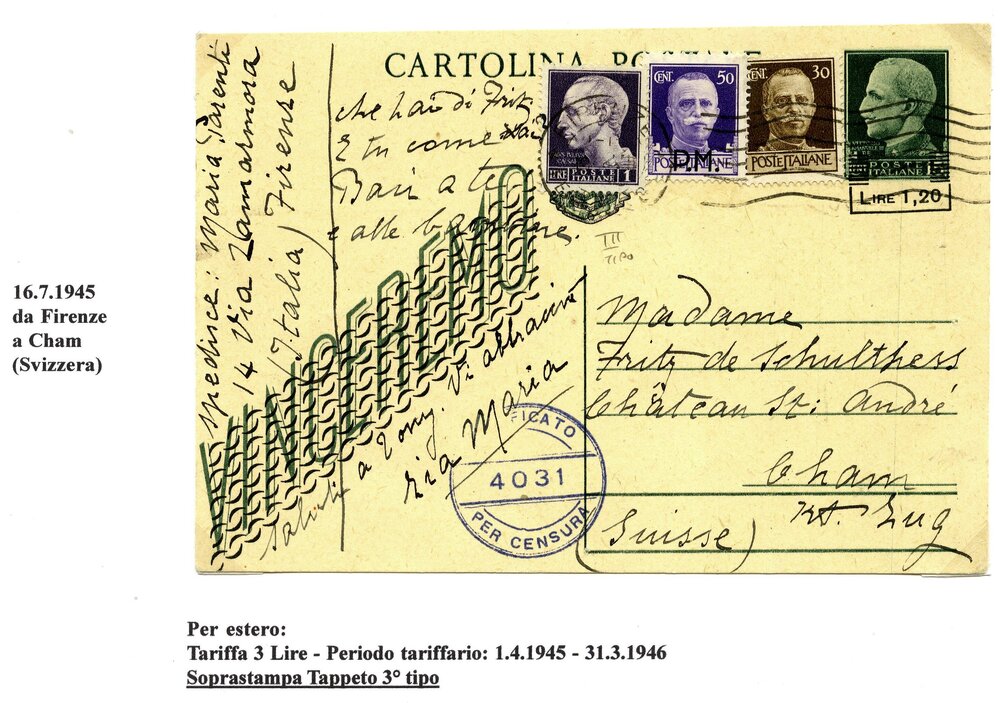 16.7.1945
da Firenze
a Cham
(Svizzera)
CARTOLINA
spedisce: Maria Parenti
14 Via Lamarmora
(Italia) Firenze
che hai di Fritz
E tu come stai
Baci a te
e alle bambine.
saluti a Tony. Vi abbraccia
zia Maria
VINCEREMO
LIRE 1
POSTE ITALIANE
CENT. 50
P.M.
POSTE ITALIANE
CENT. 30
POSTE ITALIANE
POSTE ITALIANE
LIRE 1,20
III
TIPO
Madame
Fritz de Schulthess
Château St: André
Cham
Kt. Zug
(Suisse)
FICATO
4031
PER CENSURA
Per estero:
Tariffa 3 Lire - Periodo tariffario: 1.4.1945 - 31.3.1946
Soprastampa Tappeto 3° tipo